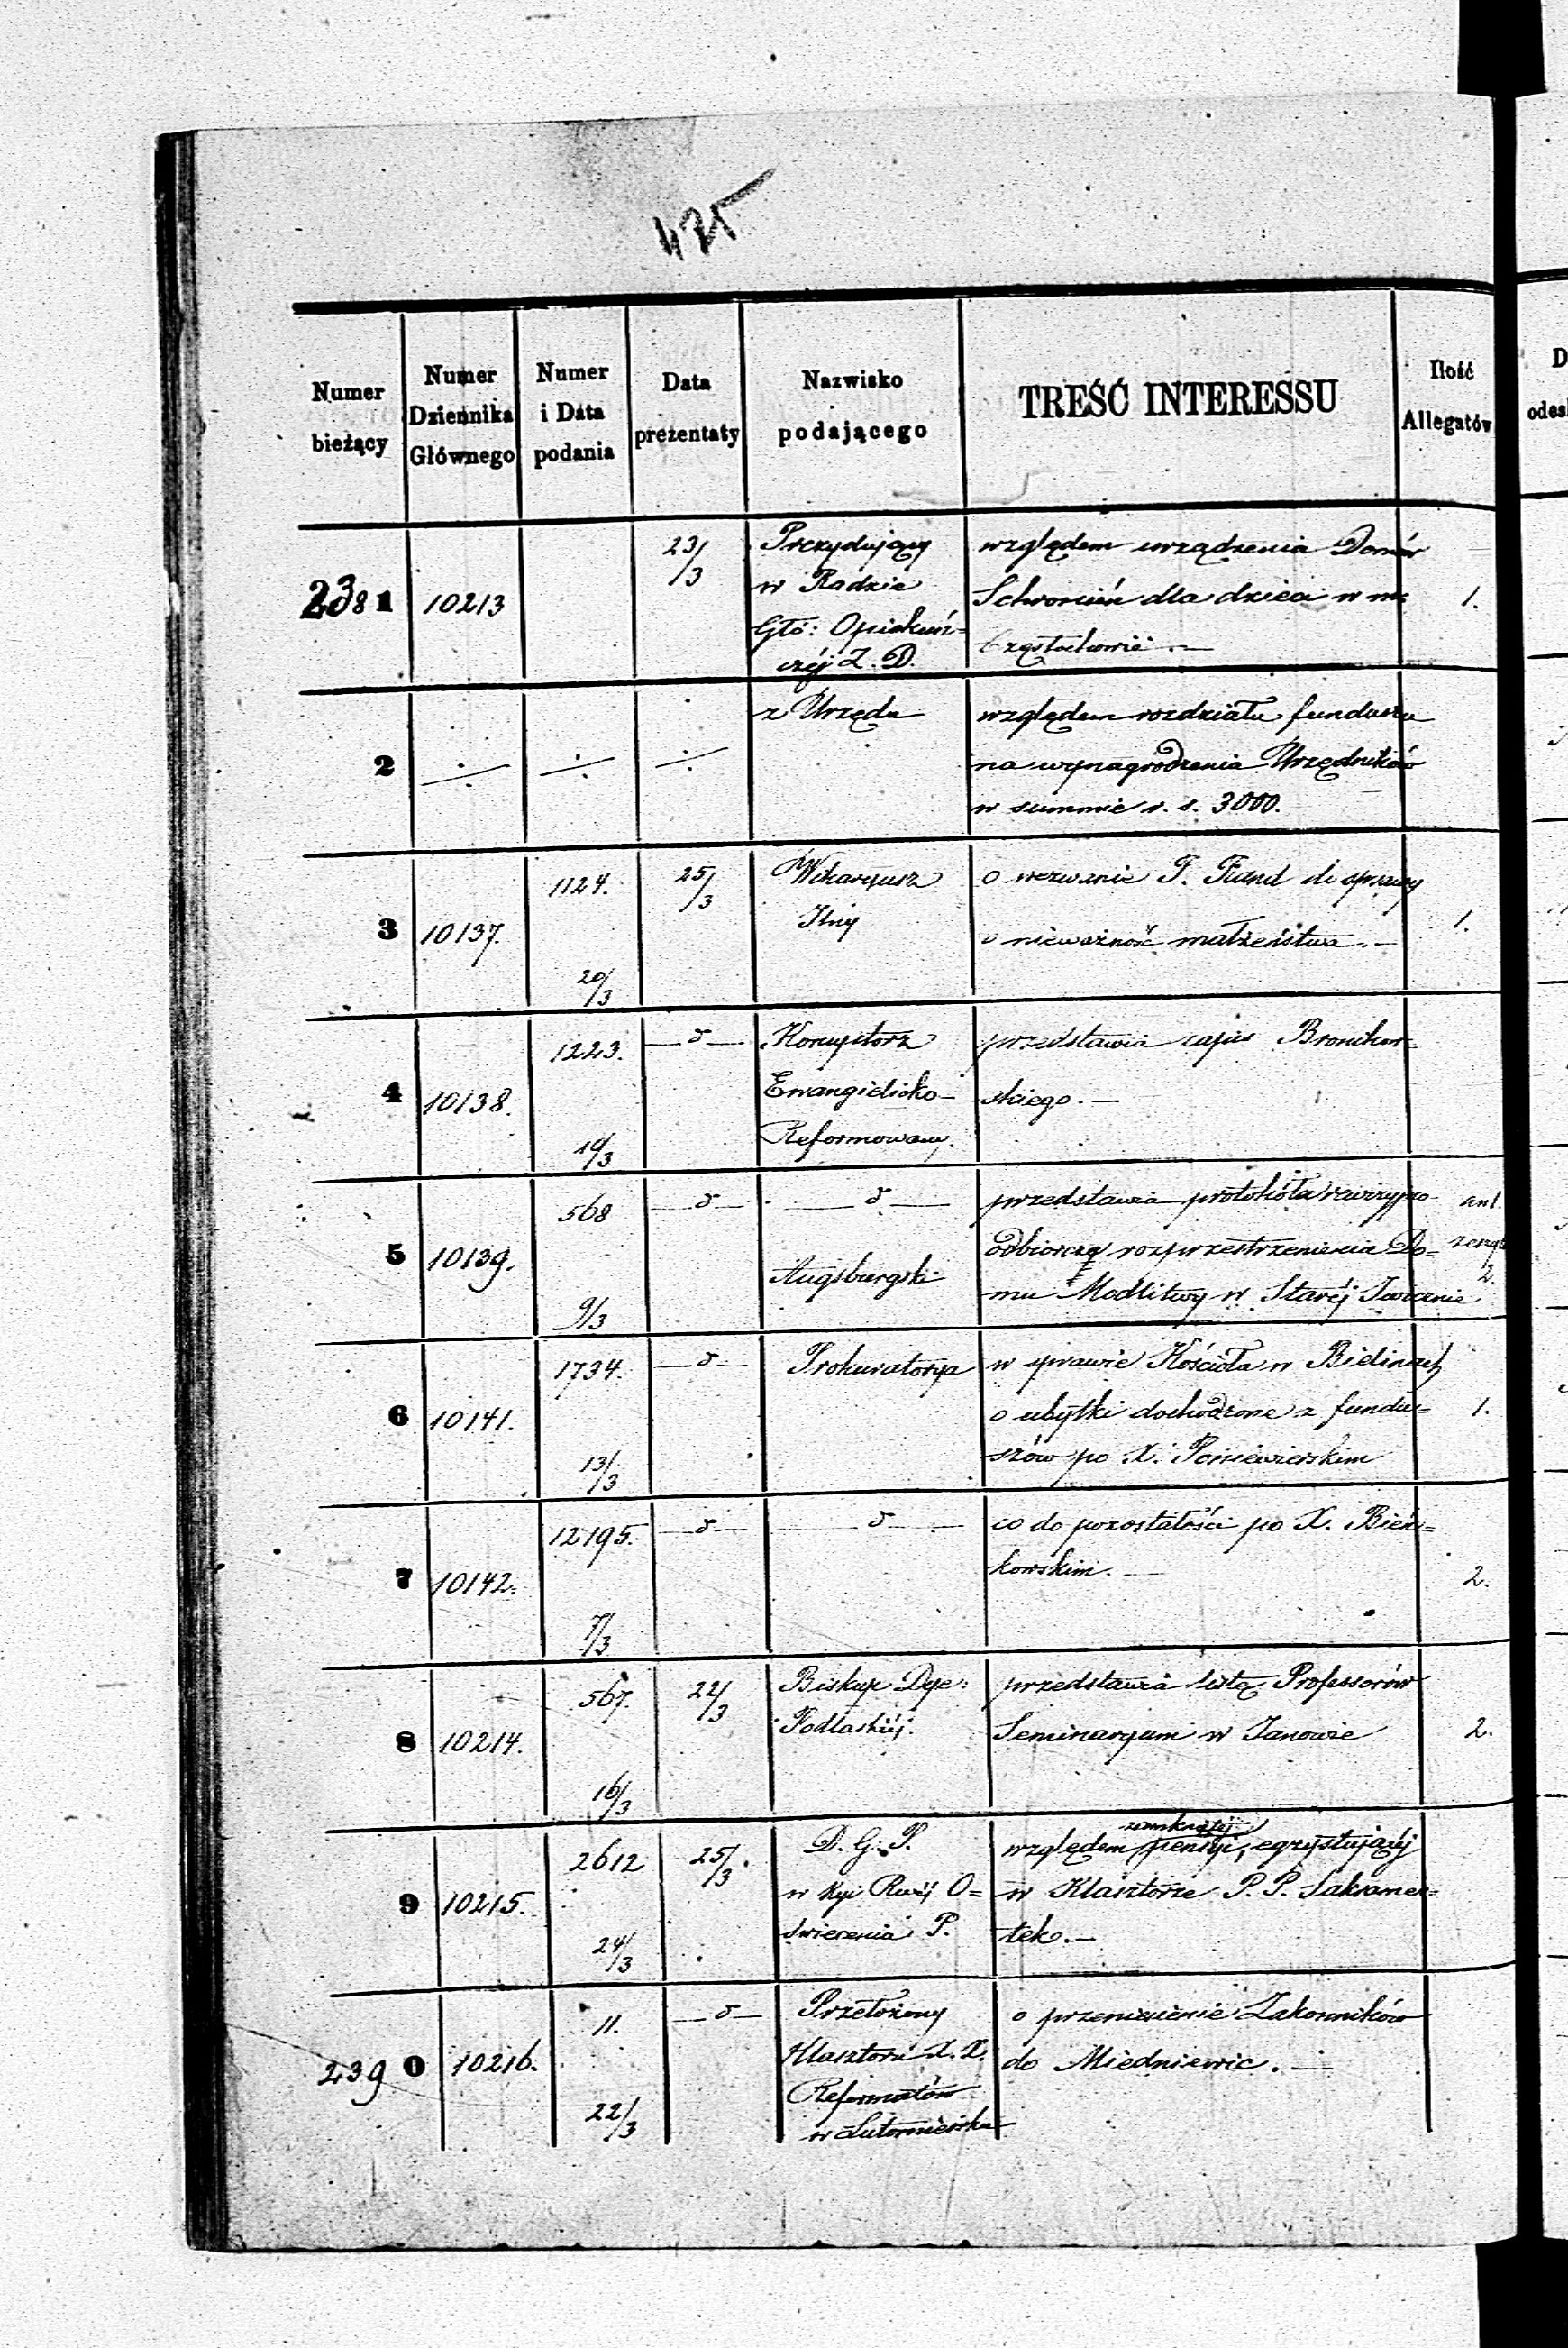 425
Numer bieżący
Numer Dziennika Głównego
Numer i Data podania
Data prezentaty
Nazwisko podającego
TREŚĆ INTERESSU
Ilość Allegatów
D
odes
2381
10213
23/3
Prezydujący
w Radzie
Głó: Opiekuń=
czéj Z. D.
względem urządzenia Domów
Schronień dla dzieci w m:
Częstochowie.—
1.
2
z Urzędu
względem rozdziału funduszu
na wynagrodzenia Urzędników
w summie r. s. 3000.
3
10137.
1124.
20/3
25/3
Wikaryusz
Jlny
o wezwanie F. do sprawy
o nieważność małżeństwa.—
1.
4
10138.
1223.
10/3
—d—
Konsystorz
Ewangielicko-
Reformowany.
przedstawia zapis Bronikow=
skiego.—
5
10139.
568
9/3
—d—
—d—
Augsburgski
przedstawia protokóła rewizyjno
odbiorczą rozprzestrzenienia Do=
mu Modlitwy w Staréj Iwicznie
2.
6
10141.
1734.
13/3
—d—
Prokuratorya
w sprawie Kościoła w Bielinach
o ubytki dochodzone z fundu=
szów po X. Poniewierskim
1.
7
10142.
12195.
7/3
—d—
—d—
co do pozostałości po X. Bień=
kowskim.—
2.
8
10214.
567.
16/3
22/3
Biskup Dye:
Podlaskiéj.
przedstawia listę Professorów
Seminaryum w Janowie
2.
9
10215.
2612
24/3
25/3.
D. G. P.
w Kyi Rwéj O=
świecenia P.
zamkniętéj
względem pensyi, egzystującéj
w Klasztorze P. P. Sakramen=
tek.—
2390
10216.
11.
22/3
—d—
Przełożony
Klasztoru X. X.
Reformatów
w Lutomiersku
o przeniesienie Zakonników
do Miedniewic.—